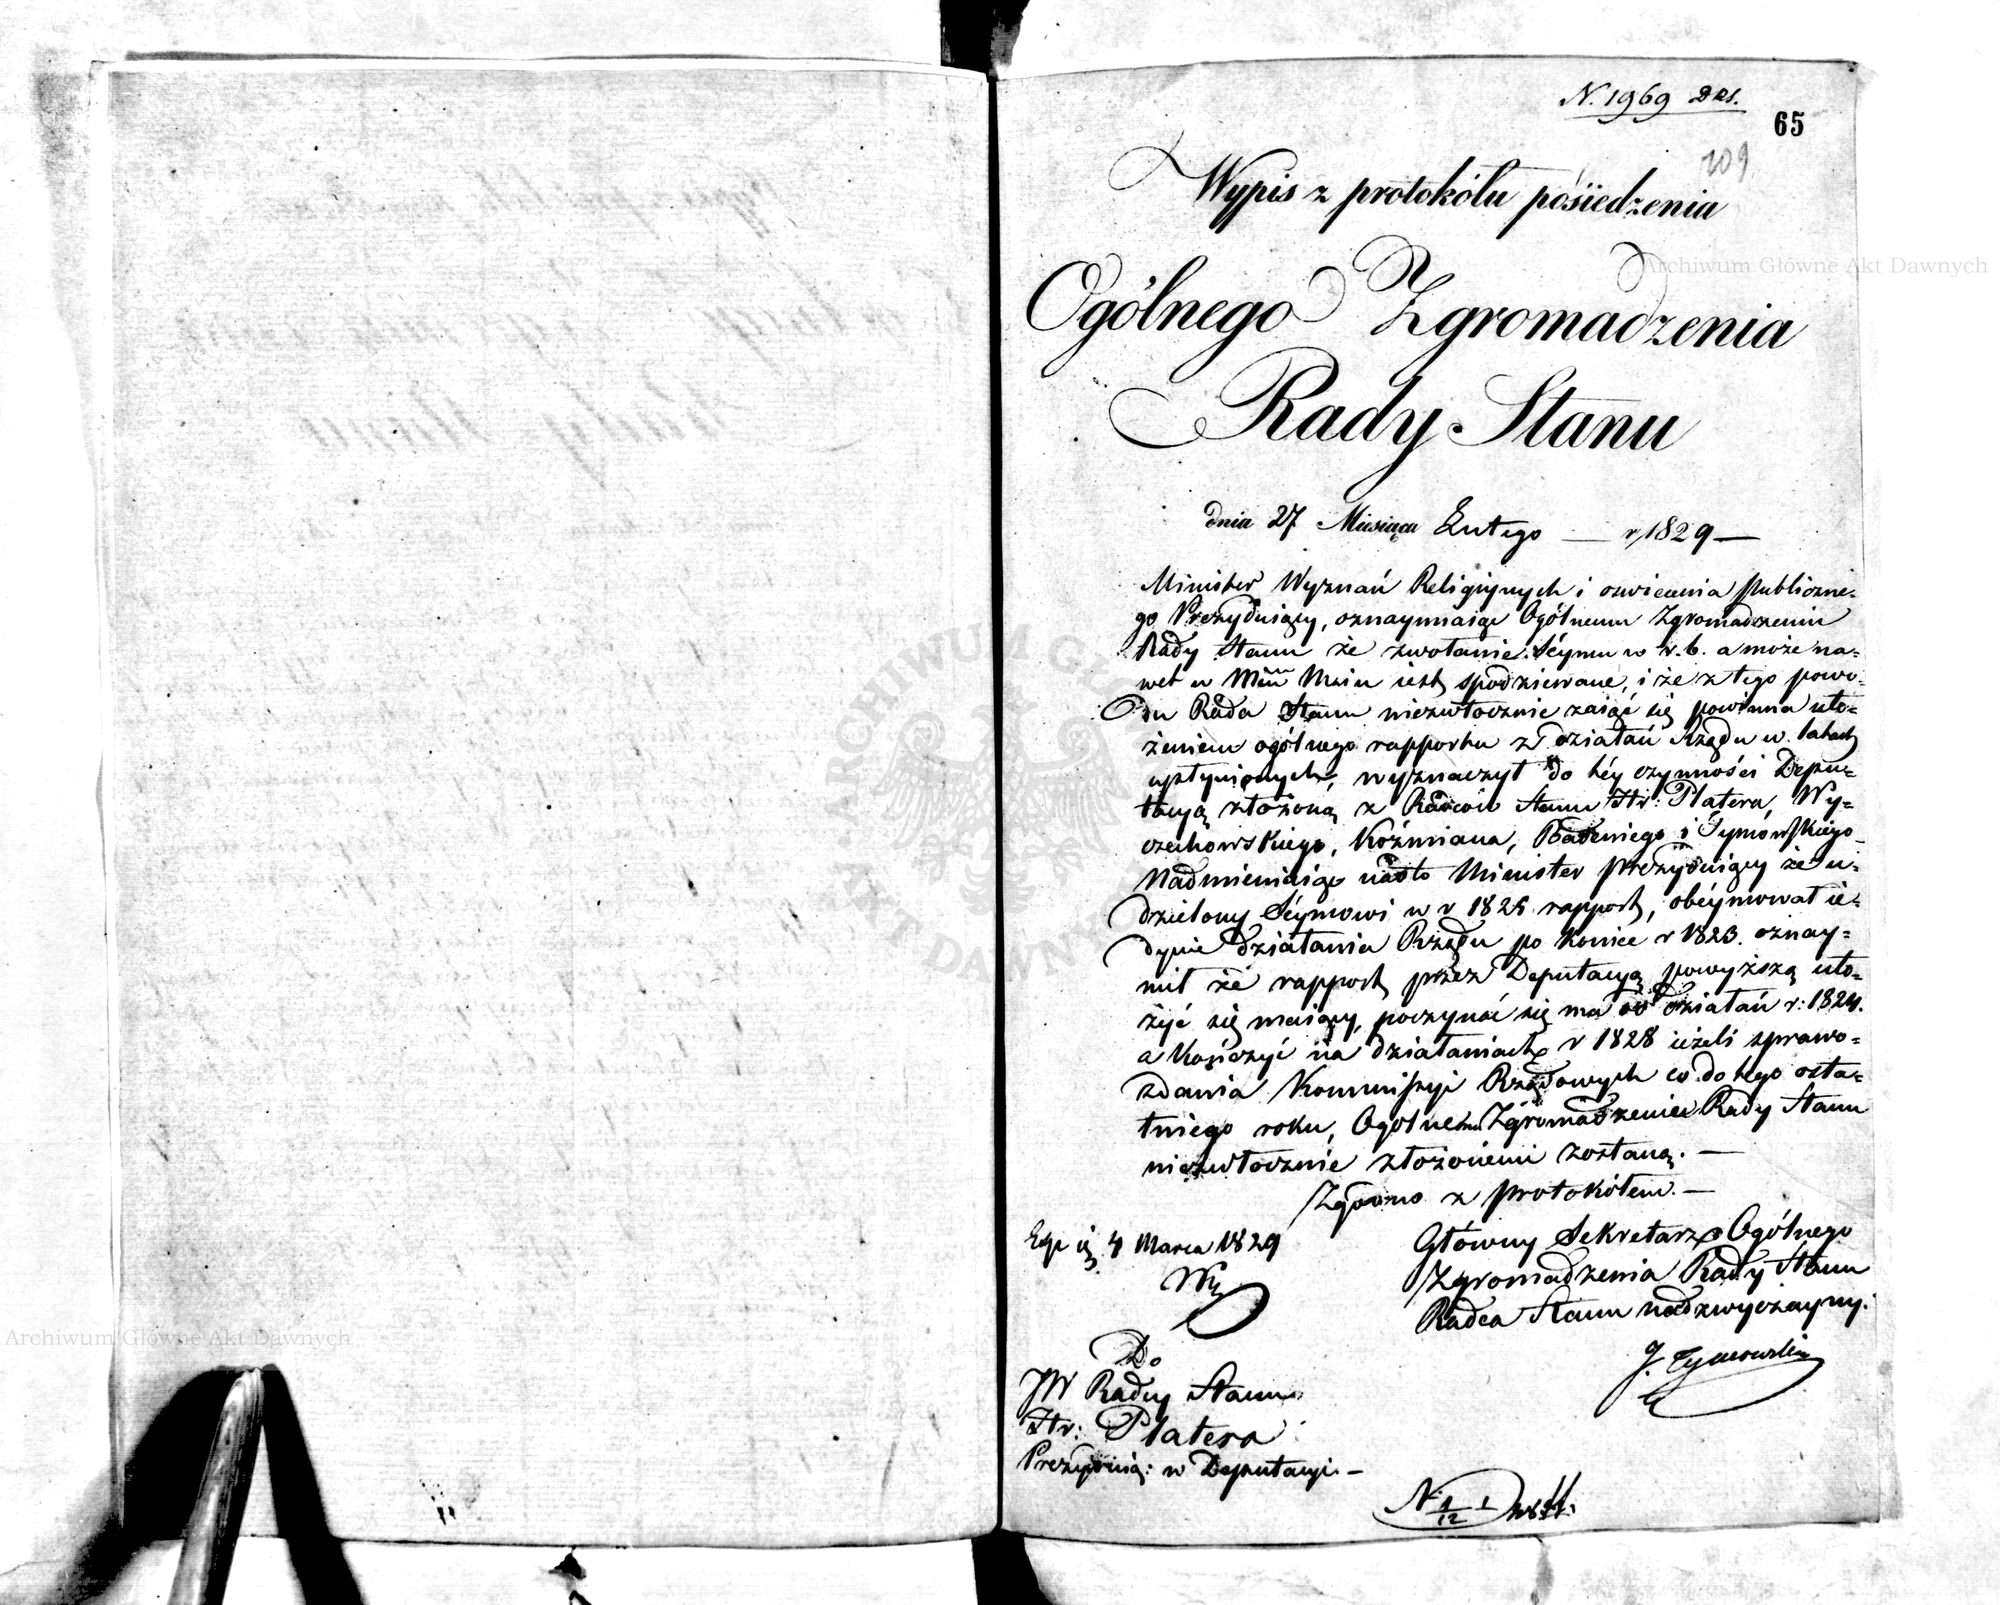 N. 1969 DRS.
65
109
Wypis z protokółu posiedzenia
Ogólnego Zgromadzenia
Rady Stanu
dnia 27 Miesiąca Lutego — r. 1829 —
Minister Wyznań Religijnych i oswiecenia publiczne-
go Prezyduiący, oznaymiaiąc Ogólnemu Zgromadzeniu
Rady Stanu że zwołanie Séymu w r. b. a może na-
wet w Mcu Maiu iest spodziewane, i że z tego powo-
du Rada Stanu niezwłocznie zaiąć się powinna uło-
żeniem ogólnego rapportu z działań Rządu w latach
upłynionych, wyznaczył do téy czynności Depu-
tacyą złożoną z Radców Stanu Hr: Platera, Wy-
czechowskiego, Koźmiana, Badeniego i Tymowskiego
Nadmieniaiąc nadto Minister Prezyduiący że u-
dzielony Séymowi w r 1825 rapport, obéymował ie-
dynie działania Rządu po koniec r 1823. oznay-
mił że rapport przez Deputacyą powyższą uło-
żyć się maiący, poczynać się ma od działań r: 1824.
a kończyć na działaniach r 1828 ieżeli sprawo-
zdania Kommissyi Rządowych co do tego osta-
tniego roku, Ogolnemu Zgromadzeniu Rady Stanu
niezwłocznie złożonemi zostaną. —
Zgodno z protokółem. —
4 Marca 1829
Główny Sekretarz Ogólnego
Zgromadzenia Rady Stanu
Radca Stanu nadzwyczayny.
J. Tymowski
Do
JW Radcy Stanu
Hr: Platera
Prezyduią: w Deputacyi. —
N. 1/12
Archiwum Główne Akt Dawnych
Archiwum Główne Akt Dawnych
ARCHIWUM GŁÓWNE AKT DAWNYCH